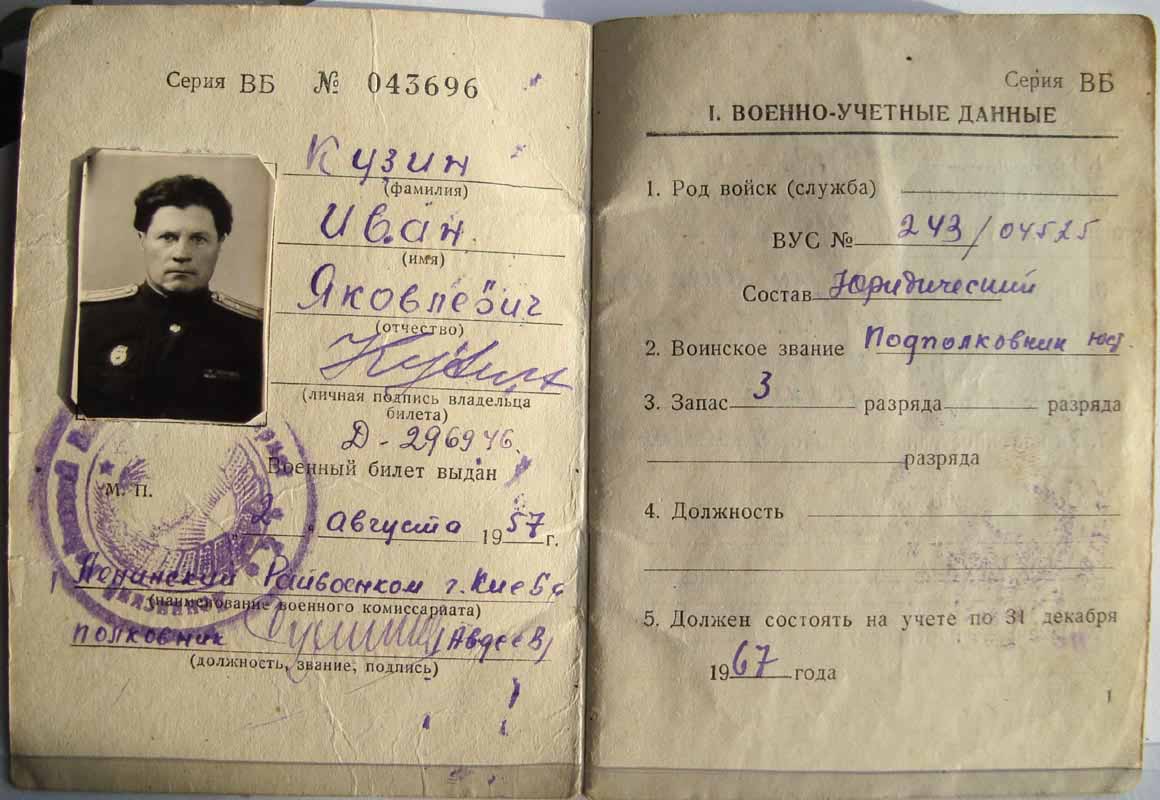 Серия ВБ № 043696
Кузин
(фамилия)
Иван
(имя)
Яковлевич
(отчество)
(личная подпись владельца
билета)
Д - 296946.
Военный билет выдан
М. П.
2 августа 1957 г.
Ленинский Райвоенком г. Киева
(наименование военного комиссариата)
полковник (Авдеев)
(должность, звание, подпись)
Серия ВБ
I. ВОЕННО-УЧЕТНЫЕ ДАННЫЕ
1. Род войск (служба)
ВУС № 243/04525
Состав Юридический
2. Воинское звание Подполковник юст.
3. Запас 3 разряда разряда
разряда
4. Должность
5. Должен состоять на учете по 31 декабря
1967 года
1